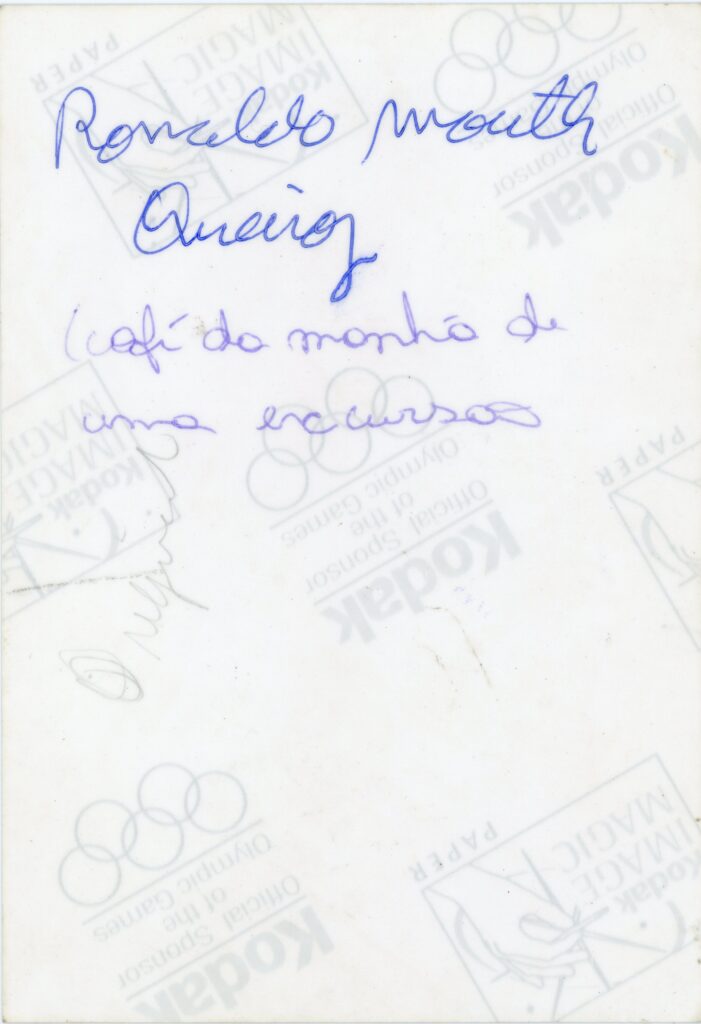 Ronaldo Mouth
Queiroz
(café da manhã de
uma excursão
PAPER
MAGIC
IMAGE
Kodak
Olympic Games
of the
Official Sponsor
Kodak
MAGIC
IMAGE
Kodak
Olympic Games
of the
Official Sponsor
Kodak
PAPER
Olympic Games
of the
Official Sponsor
Kodak
PAPER
MAGIC
IMAGE
Kodak